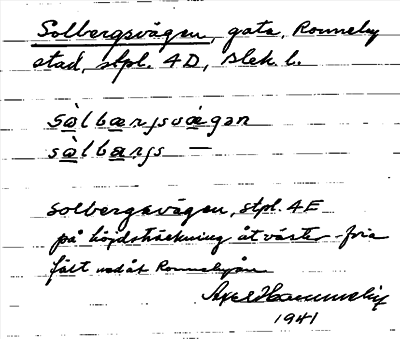 Solbergsvägen, gata, Ronneby
stad, stpl. 4D, Blek. l.
sòlbærjsvæ̀gən
sòlbærjs —
Solbergsvägen, stpl. 4E
på höjdsträckning åt väster från
fält nedåt Ronnebyån
1941